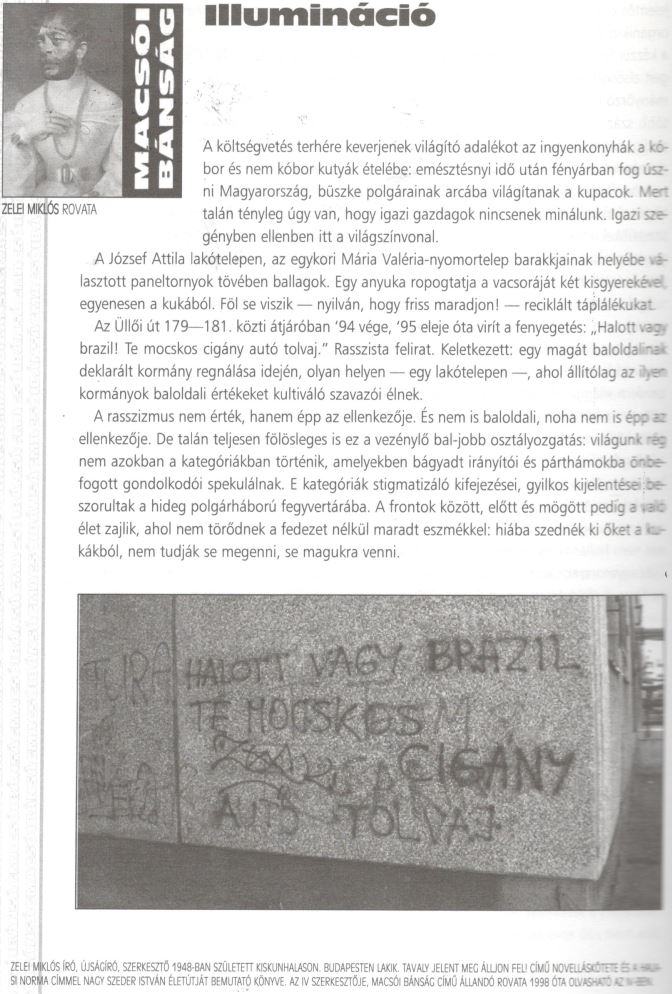 Illumináció
MACSÓI
BÁNSÁG
ZELEI MIKLÓS ROVATA
A költségvetés terhére keverjenek világító adalékot az ingyenkonyhák a kó-
bor és nem kóbor kutyák ételébe: emésztésnyi idő után fényárban fog úsz-
ni Magyarország, büszke polgárainak arcába világítanak a kupacok. Mert
talán tényleg úgy van, hogy igazi gazdagok nincsenek minálunk. Igazi sze-
gényben ellenben itt a világszínvonal.
A József Attila lakótelepen, az egykori Mária Valéria-nyomortelep barakkjainak helyébe vá-
lasztott paneltornyok tövében ballagok. Egy anyuka ropogtatja a vacsoráját két kisgyerekével,
egyenesen a kukából. Föl se viszik — nyilván, hogy friss maradjon! — reciklált táplálékukat.
Az Üllői út 179—181. közti átjáróban '94 vége, '95 eleje óta virít a fenyegetés: „Halott vagy
brazil! Te mocskos cigány autó tolvaj.” Rasszista felirat. Keletkezett: egy magát baloldalinak
deklarált kormány regnálása idején, olyan helyen — egy lakótelepen —, ahol állítólag az ilyen
kormányok baloldali értékeket kultiváló szavazói élnek.
A rasszizmus nem érték, hanem épp az ellenkezője. És nem is baloldali, noha nem is épp az
ellenkezője. De talán teljesen fölösleges is ez a vezénylő bal-jobb osztályozgatás: világunk rég
nem azokban a kategóriákban történik, amelyekben bágyadt irányítói és párthámokba önbe-
fogott gondolkodói spekulálnak. E kategóriák stigmatizáló kifejezései, gyilkos kijelentései be-
szorultak a hideg polgárháború fegyvertárába. A frontok között, előtt és mögött pedig a való
élet zajlik, ahol nem törődnek a fedezet nélkül maradt eszmékkel: hiába szednék ki őket a ku-
kákból, nem tudják se megenni, se magukra venni.
TURA
HALOTT VAGY BRAZIL
TE MOCSKOS M
CIGÁNY
AUTÓ TOLVAJ
ZELEI MIKLÓS ÍRÓ, ÚJSÁGÍRÓ, SZERKESZTŐ 1948-BAN SZÜLETETT KISKUNHALASON. BUDAPESTEN LAKIK. TAVALY JELENT MEG ÁLLJON FEL! CÍMŰ NOVELLÁSKÖTETE ÉS A HALA-
SI NORMA CÍMMEL NAGY SZEDER ISTVÁN ÉLETÚTJÁT BEMUTATÓ KÖNYVE. AZ IV SZERKESZTŐJE, MACSÓI BÁNSÁG CÍMŰ ÁLLANDÓ ROVATA 1998 ÓTA OLVASHATÓ AZ IV-BEN.